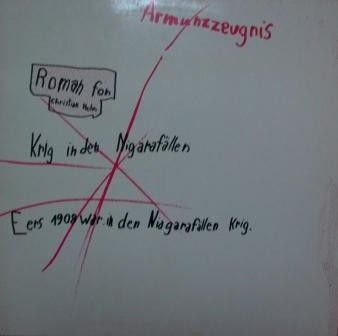 Armuhzzeugnis
Romah fon
Christian Hahn
Krig in den Nigarafällen
Eers 1908 war in den Niagarafällen Krig.